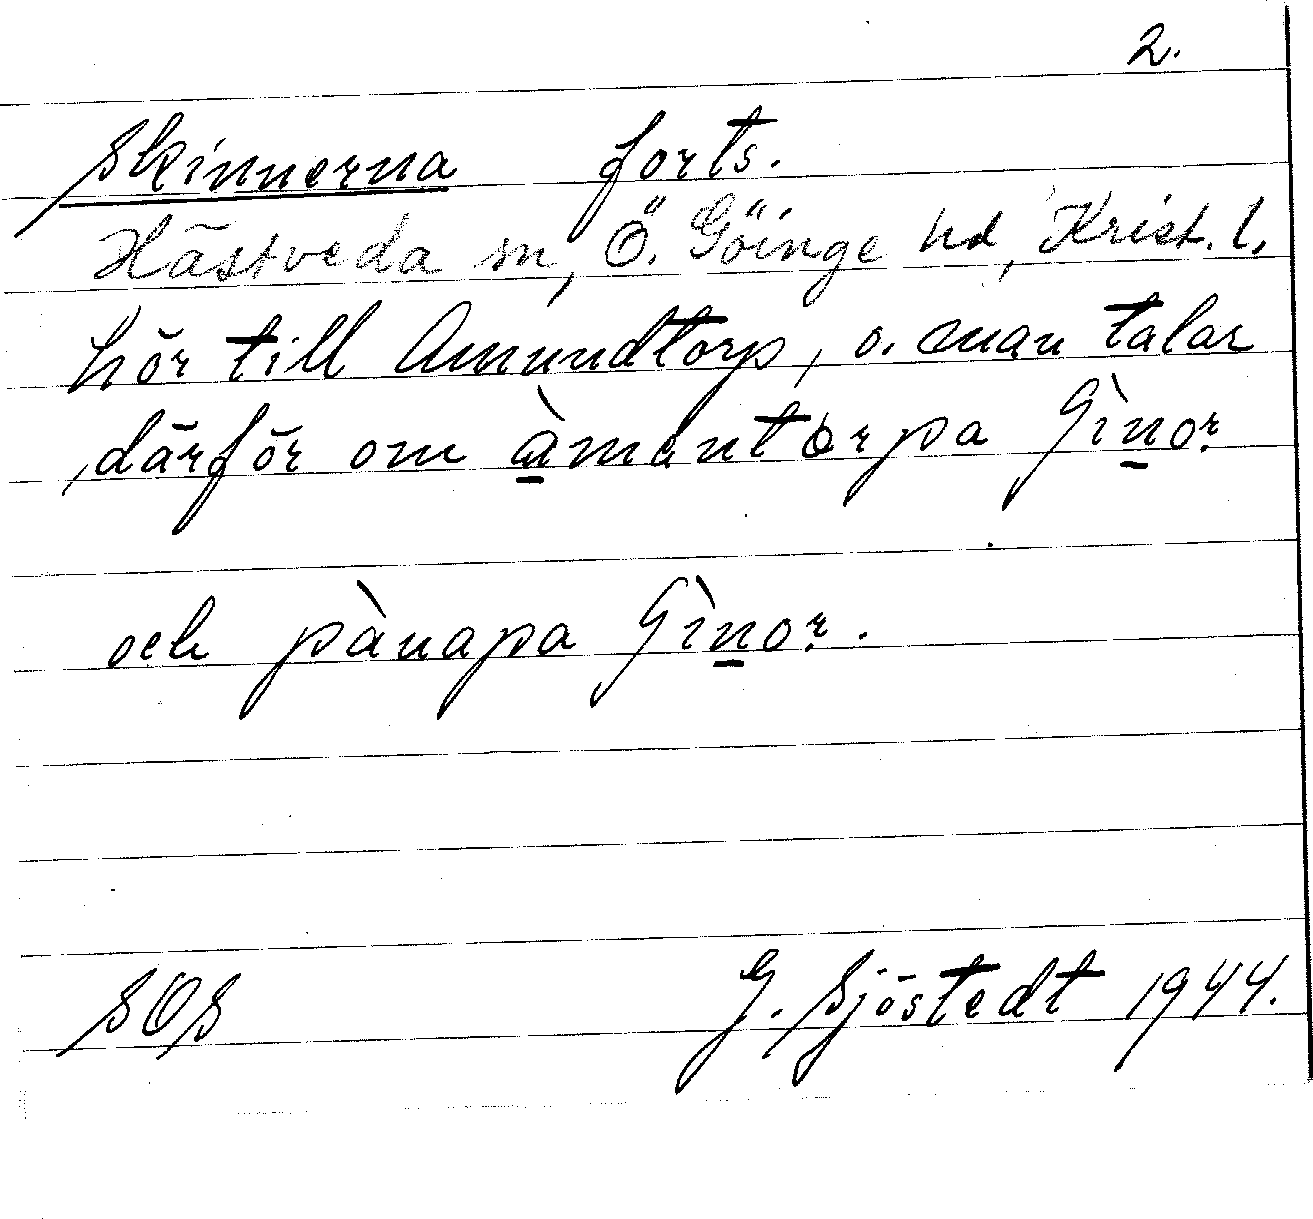 2.
Skinnerna forts.
Hästveda sn, Ö. Göinge hd, Krist. l.
hör till Amundtorp, o. man talar
därför om àmantorpa Gìnor.
och pànapa Gìnor.
SOS G. Sjöstedt 1944.